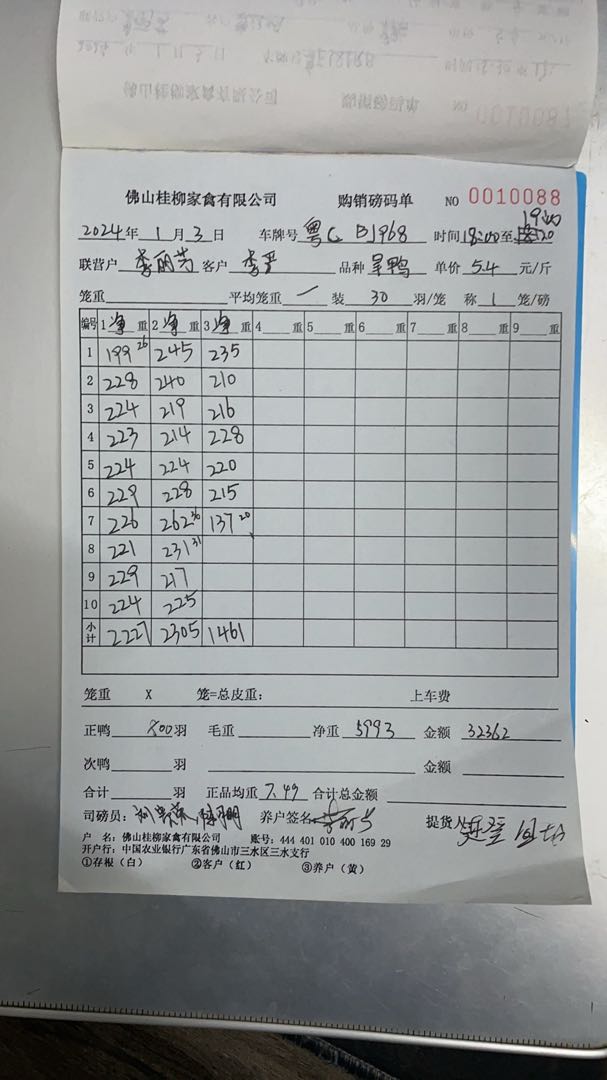 佛山桂柳家禽有限公司 购销磅码单 NO 0010088
19:00
2024年 1月 3日 车牌号 粤C BJ968 时间 18:00至
联营户 李丽芳 客户 李严 品种 旱鸭 单价 5.4 元/斤
笼重 平均笼重 装 30 羽/笼 称 1 笼/磅
编号 1净重 2净重 3净重 4 重 5 重 6 重 7 重 8 重 9 重
1 199 26 245 235
2 228 240 210
3 224 219 216
4 223 214 228
5 224 224 220
6 229 228 215
7 226 262 36 137 20
8 221 231 31
9 229 217
10 224 225
小计 2227 2305 1461
笼重 X 笼=总皮重: 上车费
正鸭 800羽 毛重 净重 5993 金额 32362
次鸭 羽 金额
合计 羽 正品均重 7.49 合计总金额
司磅员: 养户签名 提货人
户 名: 佛山桂柳家禽有限公司 账号: 444 401 010 400 169 29
开户行: 中国农业银行广东省佛山市三水区三水支行
①存根（白） ②客户（红） ③养户（黄）